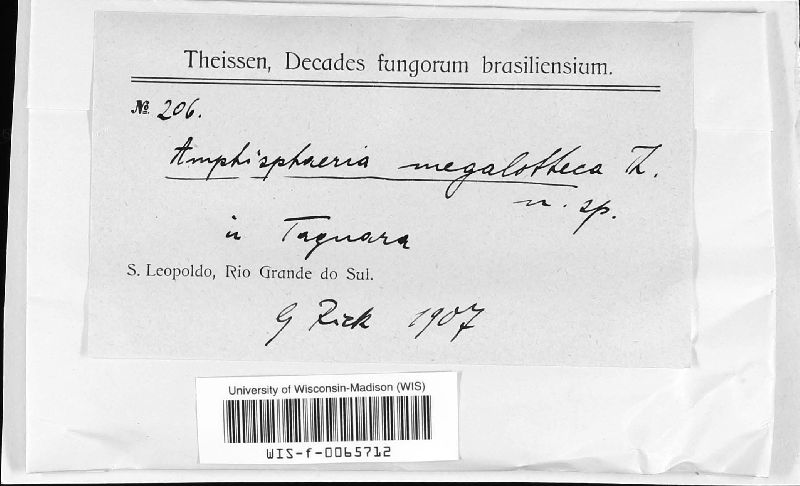 Theissen, Decades fungorum brasiliensium.
№ 206.
Amphisphaeria megalotheca Th.
n. sp.
in Taquara
S. Leopoldo, Rio Grande do Sul.
G Rick 1907
University of Wisconsin-Madison (WIS)
WIS-f-0065712